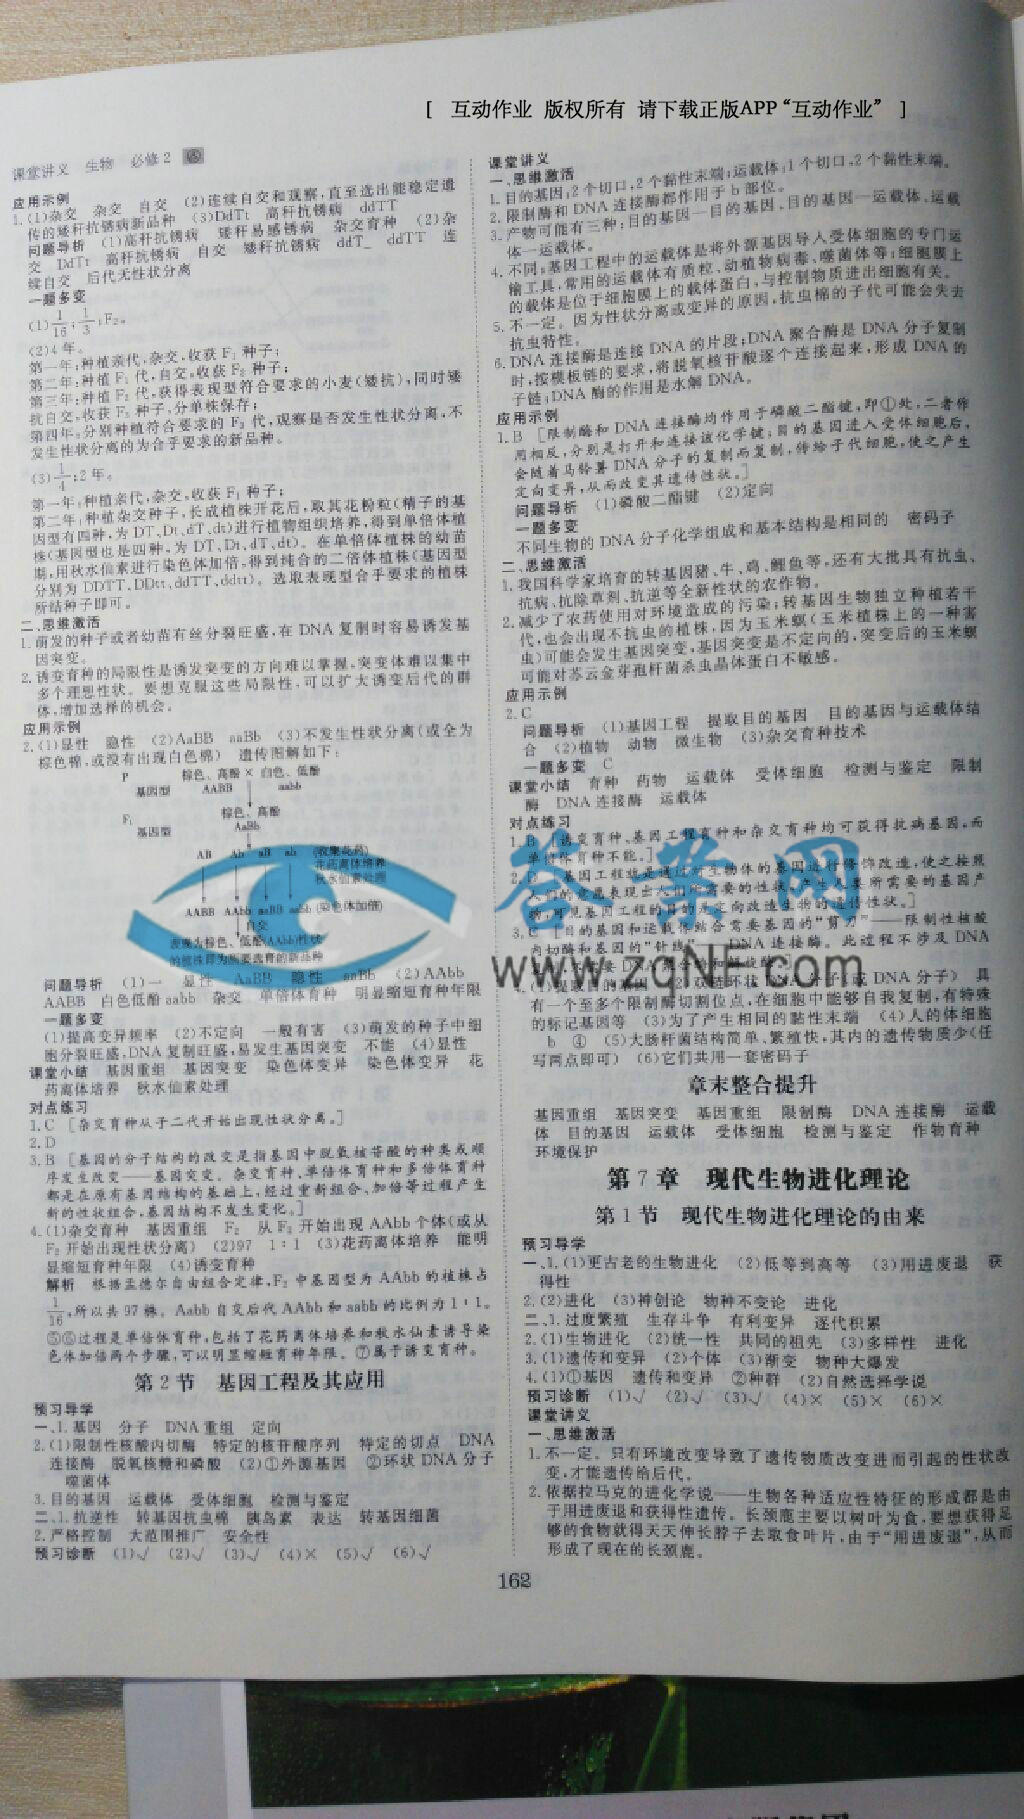 [ 互动作业 版权所有 请下载正版APP“互动作业” ]
课堂讲义 生物 必修2
应用示例
1.(1)杂交 杂交 自交 (2)连续自交和观察,直至选出能稳定遗
传的矮秆抗锈病新品种 (3)DdTt 高秆抗锈病 ddTT
问题导析 (1)高秆抗锈病 矮秆易感锈病 杂交育种 (2)杂
交 DdTt 高秆抗锈病 自交 矮秆抗锈病 ddT_ ddTT 连
续自交 后代无性状分离
一题多变
(1)1/16;1/3;F₂。
(2)4年。
第一年:种植亲代,杂交,收获F₁种子;
第二年:种植F₁代,自交,收获F₂种子;
第三年:种植F₂代,获得表现型符合要求的小麦(矮抗),同时矮
抗自交,收获F₃种子,分单株保存;
第四年:分别种植符合要求的F₃代,观察是否发生性状分离,不
发生性状分离的为合乎要求的新品种。
(3)1/4;2年。
第一年:种植亲代,杂交,收获F₁种子;
第二年:种植杂交种子,长成植株开花后,取其花粉粒(精子的基
因型有四种,为DT、Dt、dT、dt)进行植物组织培养,得到单倍体植
株(基因型也是四种,为DT、Dt、dT、dt)。在单倍体植株的幼苗
期,用秋水仙素进行染色体加倍,得到纯合的二倍体植株(基因型
分别为DDTT、DDtt、ddTT、ddtt)。选取表现型合乎要求的植株
所结种子即可。
二、思维激活
1.萌发的种子或者幼苗有丝分裂旺盛,在DNA复制时容易诱发基
因突变。
2.诱变育种的局限性是诱发突变的方向难以掌握,突变体难以集中
多个理想性状。要想克服这些局限性,可以扩大诱变后代的群
体,增加选择的机会。
应用示例
2.(1)显性 隐性 (2)AaBB aaBb (3)不发生性状分离(或全为
棕色棉,或没有出现白色棉) 遗传图解如下:
P 棕色、高酚×白色、低酚
基因型 AABB aabb
F₁ 棕色、高酚
基因型 AaBb
AB Ab aB ab (收集花药)
花药离体培养
秋水仙素处理
AABB AAbb aaBB aabb (染色体加倍)
自交
表现为棕色、低酚(AAbb)性状
的植株即为所要选育的新品种
问题导析 (1)一 显性 AaBB 隐性 aaBb (2)AAbb
AABB 白色低酚aabb 杂交 单倍体育种 明显缩短育种年限
一题多变
(1)提高变异频率 (2)不定向 一般有害 (3)萌发的种子中细
胞分裂旺盛,DNA复制旺盛,易发生基因突变 不能 (4)显性
课堂小结 基因重组 基因突变 染色体变异 染色体变异 花
药离体培养 秋水仙素处理
对点练习
1.C [杂交育种从子二代开始出现性状分离。]
2.D
3.B [基因的分子结构的改变是指基因中脱氧核苷酸的种类或顺
序发生改变——基因突变。杂交育种、单倍体育种和多倍体育种
都是在原有基因结构的基础上,经过重新组合、加倍等过程产生
新的性状组合,基因结构不发生变化。]
4.(1)杂交育种 基因重组 F₂ 从F₂开始出现AAbb个体(或从
F₂开始出现性状分离) (2)97 1∶1 (3)花药离体培养 能明
显缩短育种年限 (4)诱变育种
解析 根据孟德尔自由组合定律,F₂中基因型为AAbb的植株占
1/16,所以共97株。Aabb自交后代AAbb和aabb的比例为1∶1。
⑤⑥过程是单倍体育种,包括了花药离体培养和秋水仙素诱导染
色体加倍两个步骤,可以明显缩短育种年限。⑦属于诱变育种。
第2节 基因工程及其应用
预习导学
一、1.基因 分子 DNA重组 定向
2.(1)限制性核酸内切酶 特定的核苷酸序列 特定的切点 DNA
连接酶 脱氧核糖和磷酸 (2)①外源基因 ②环状DNA分子
噬菌体
3.目的基因 运载体 受体细胞 检测与鉴定
二、1.抗逆性 转基因抗虫棉 胰岛素 表达 转基因细菌
2.严格控制 大范围推广 安全性
预习诊断 (1)√ (2)√ (3)√ (4)× (5)√ (6)√
课堂讲义
一、思维激活
1.目的基因:2个切口,2个黏性末端;运载体:1个切口,2个黏性末端。
2.限制酶和DNA连接酶都作用于b部位。
3.产物可能有三种:目的基因—目的基因、目的基因—运载体、运载
体—运载体。
4.不同;基因工程中的运载体是将外源基因导入受体细胞的专门运
输工具,常用的运载体有质粒、动植物病毒、噬菌体等;细胞膜上
的载体是位于细胞膜上的载体蛋白,与控制物质进出细胞有关。
5.不一定。因为性状分离或变异的原因,抗虫棉的子代可能会失去
抗虫特性。
6.DNA连接酶是连接DNA的片段;DNA聚合酶是DNA分子复制
时,按模板链的要求,将脱氧核苷酸逐个连接起来,形成DNA的
子链;DNA酶的作用是水解DNA。
应用示例
1.B [限制酶和DNA连接酶均作用于磷酸二酯键,即①处,二者作
用相反,分别是打开和连接该化学键;目的基因进入受体细胞后,
会随着马铃薯DNA分子的复制而复制,传给子代细胞,使之产生
定向变异,从而改变其遗传性状。]
问题导析 (1)磷酸二酯键 (2)定向
一题多变
不同生物的DNA分子化学组成和基本结构是相同的 密码子
二、思维激活
1.我国科学家培育的转基因猪、牛、鸡、鲤鱼等,还有大批具有抗虫、
抗病、抗除草剂、抗逆等全新性状的农作物。
2.减少了农药使用对环境造成的污染;转基因生物独立种植若干
代,也会出现不抗虫的植株,因为玉米螟(玉米植株上的一种害
虫)可能会发生基因突变,基因突变是不定向的,突变后的玉米螟
可能对苏云金芽孢杆菌杀虫晶体蛋白不敏感。
应用示例
2.C
问题导析 (1)基因工程 提取目的基因 目的基因与运载体结
合 (2)植物 动物 微生物 (3)杂交育种技术
一题多变 C
课堂小结 育种 药物 运载体 受体细胞 检测与鉴定 限制
酶 DNA连接酶 运载体
对点练习
1.B [诱变育种、基因工程育种和杂交育种均可获得抗病基因,而
单倍体育种不能。]
2.D [基因工程就是通过对生物体的基因进行修饰改造,使之按照
人们的意愿表现出人们所需要的性状,产生人类所需要的基因产
物,可见基因工程的目的是定向改造生物的遗传性状。]
3.C [目的基因和运载体结合需要基因的“剪刀”——限制性核酸
内切酶和基因的“针线”——DNA连接酶。此过程不涉及DNA
提取目的基因 (2)双链环状DNA分子(或DNA分子) 具
有一个至多个限制酶切割位点,在细胞中能够自我复制,有特殊
的标记基因等 (3)为了产生相同的黏性末端 (4)人的体细胞
b ④ (5)大肠杆菌结构简单、繁殖快,其内的遗传物质少(任
写两点即可) (6)它们共用一套密码子
章末整合提升
基因重组 基因突变 基因重组 限制酶 DNA连接酶 运载
体 目的基因 运载体 受体细胞 检测与鉴定 作物育种
环境保护
第7章 现代生物进化理论
第1节 现代生物进化理论的由来
预习导学
一、1.(1)更古老的生物进化 (2)低等到高等 (3)用进废退 获
得性
2.(2)进化 (3)神创论 物种不变论 进化
二、1.过度繁殖 生存斗争 有利变异 逐代积累
2.(1)生物进化 (2)统一性 共同的祖先 (3)多样性 进化
3.(1)遗传和变异 (2)个体 (3)渐变 物种大爆发
4.(1)①基因 遗传和变异 ②种群 (2)自然选择学说
预习诊断 (1)√ (2)√ (3)√ (4)× (5)× (6)×
课堂讲义
一、思维激活
1.不一定。只有环境改变导致了遗传物质改变进而引起的性状改
变,才能遗传给后代。
2.依据拉马克的进化学说——生物各种适应性特征的形成都是由
于用进废退和获得性遗传。长颈鹿主要以树叶为食,要想获得足
够的食物就得天天伸长脖子去取食叶片,由于“用进废退”,从而
形成了现在的长颈鹿。
162
答案网
www.zqNF.com